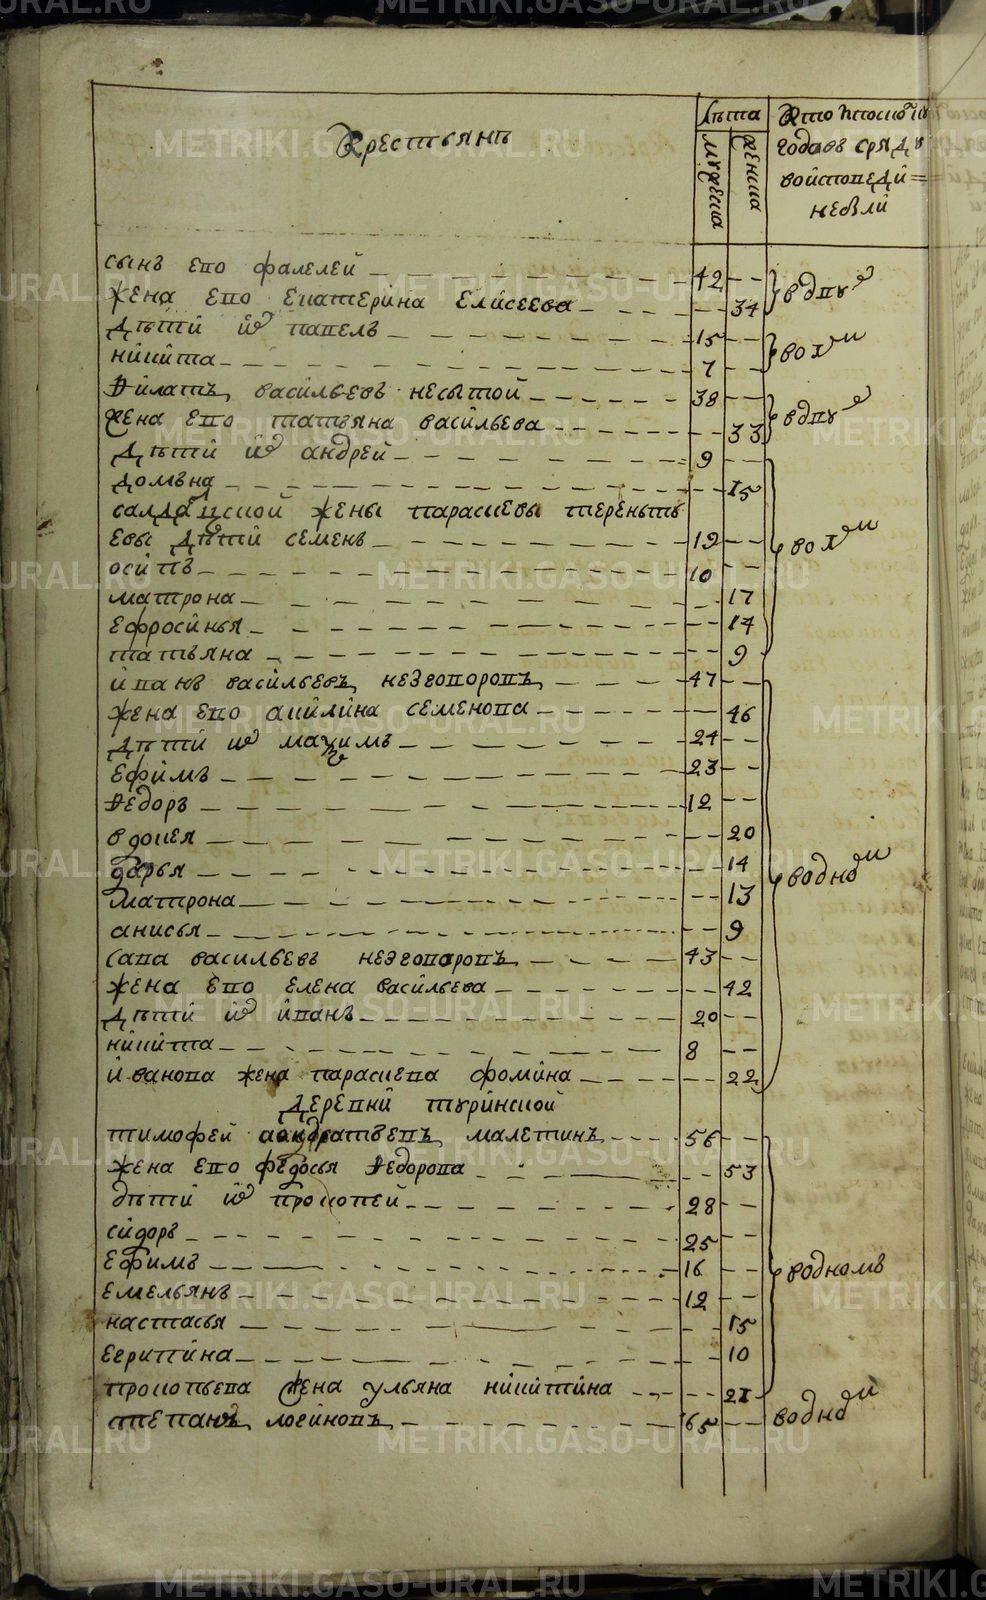 Крестьянъ
Лѣта
мужеска
женска
Кто Коликию
годовъ сряду
войсповеди=
небыли
сынъ его фалелей 42
жена его Екатерина Елисеева 34
Дѣти их павелъ 15
никита 7
Филатъ васильевъ несытой 38
жена его татьяна васильева 33
Дѣти их андрей 9
домвна 15
салдацкой жены параскевы теренть
евы Дѣти семенъ 19
осипъ 10
матрона 17
Ефросинья 14
татьяна 9
иванъ васильевъ незговоровъ 47
жена его акилина семенова 46
Дѣти их маѯимъ 24
Ефимъ 23
Федоръ 12
вдокея 20
дарья 14
матрона 13
анисья 9
сава васильевъ незговоровъ 43
жена его Елена васильева 42
Дѣти их иванъ 20
никита 8
иванова жена параскева фомина 22
Деревни туринской
тимофей кондратьевъ малетинъ 56
жена его федосья Федорова 53
дѣти их прокопей 28
сидоръ 25
Ефимъ 16
Емельянъ 12
настасья 15
Егрипина 10
прокопьева жена ульяна никитина 21
степанъ логиновъ 65
вдву
вод
вдву
вод
водно
водномъ
водно